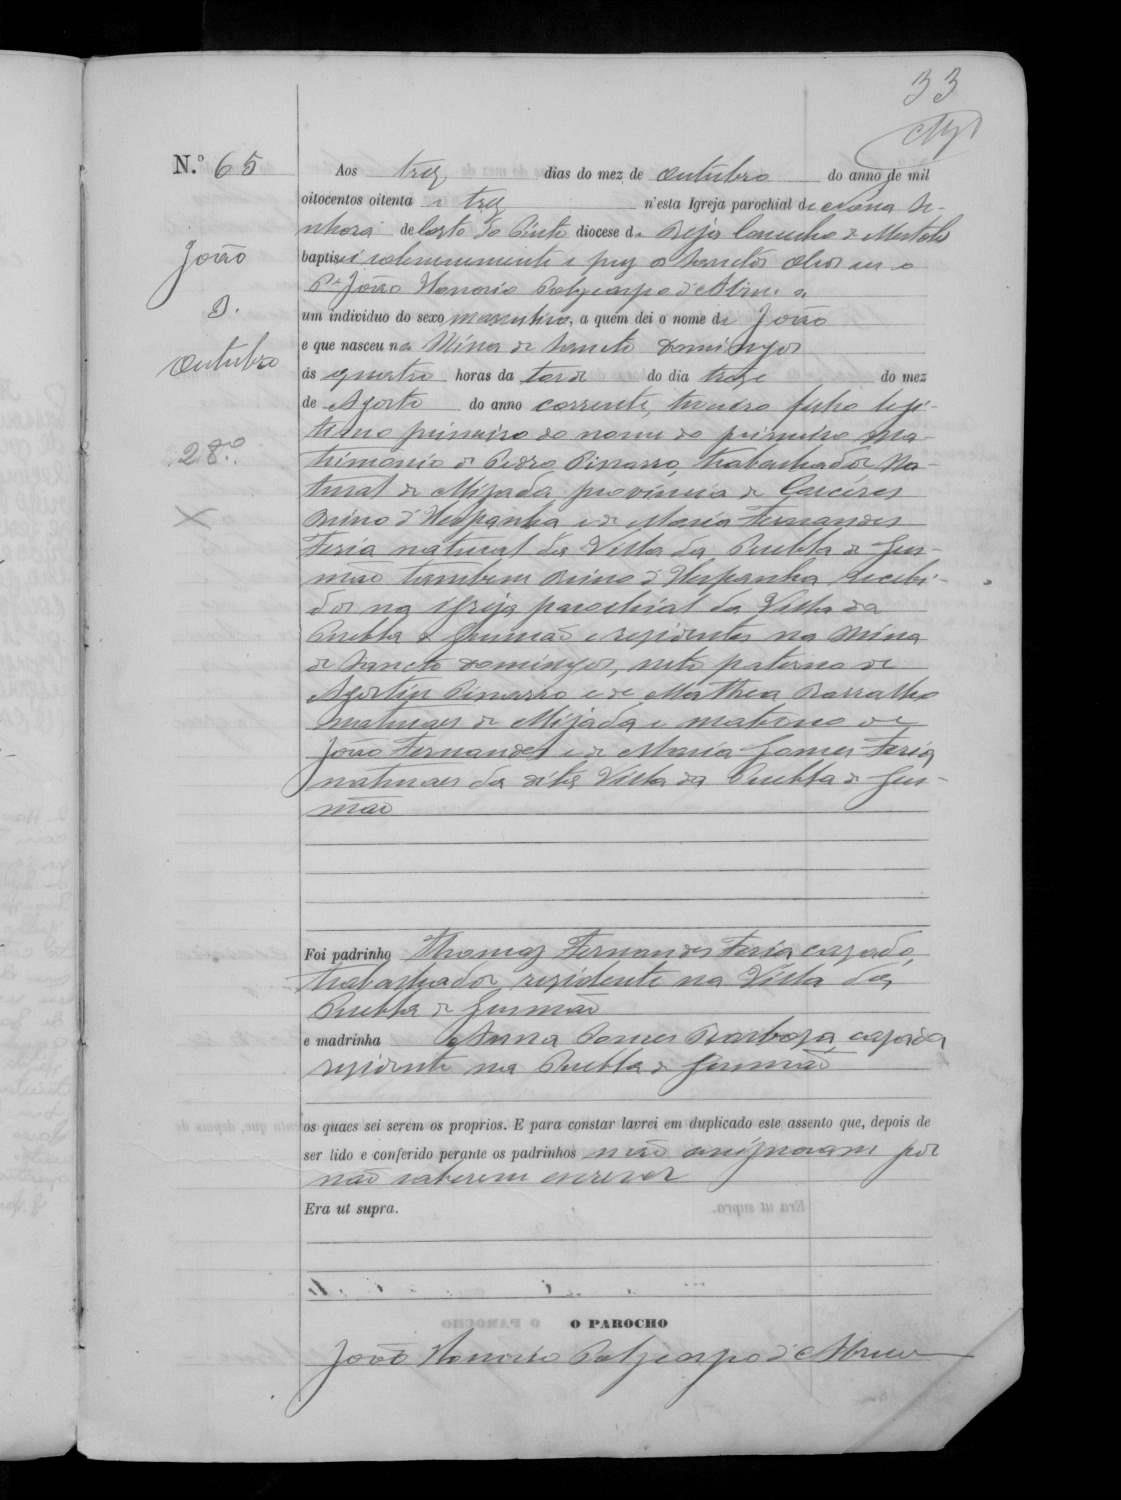 33
N.º 65
João
D.
Outubro
28.º
Aos trez dias do mez de Outubro do anno de mil
oitocentos oitenta e trez n'esta Igreja parochial de Nossa Se-
nhora de Corte do Pinto diocese de Beja Concelho de Mertola
baptisei solemnemente e puz os Sanctos Oleos eu o
Pe João Honorio Polycarpo d'Abreu a
um individuo do sexo masculino, a quem dei o nome de João
e que nasceu na Mina de Sancto Domingos
ás quatro horas da tarde do dia treze do mez
de Agosto do anno corrente, terceiro filho legi-
timo primeiro do nome do primeiro ma-
trimonio de Pedro Pissarro, trabalhador na-
tural de Mijada provincia de Caicéres
Reino d'Hespanha e de Maria Fernandes
Feria natural da Villa da Puebla de Gus-
mão tambem Reino d'Hespanha recebi-
dos na igreja parochial da Villa da
Puebla de Gusmão e residentes na Mina
de Sancto Domingos, neto paterno de
Agostin Pissarro e de Mathea Barralho
naturaes de Mijada e materno de
João Fernandes e de Maria Gomes Feria
naturaes da dita Villa da Puebla de Gus-
mão
Foi padrinho Thomaz Fernandes Feria, cazado,
trabalhador, rezidente na Villa da
Puebla de Gusmão
e madrinha Anna Gomes Barboza, cazada
rezidente na Puebla de Gusmão
os quaes sei serem os proprios. E para constar lavrei em duplicado este assento que, depois de
ser lido e conferido perante os padrinhos não assignaram por
não saberem escrever
Era ut supra.
O PAROCHO
João Honorio Polycarpo d'Abreu